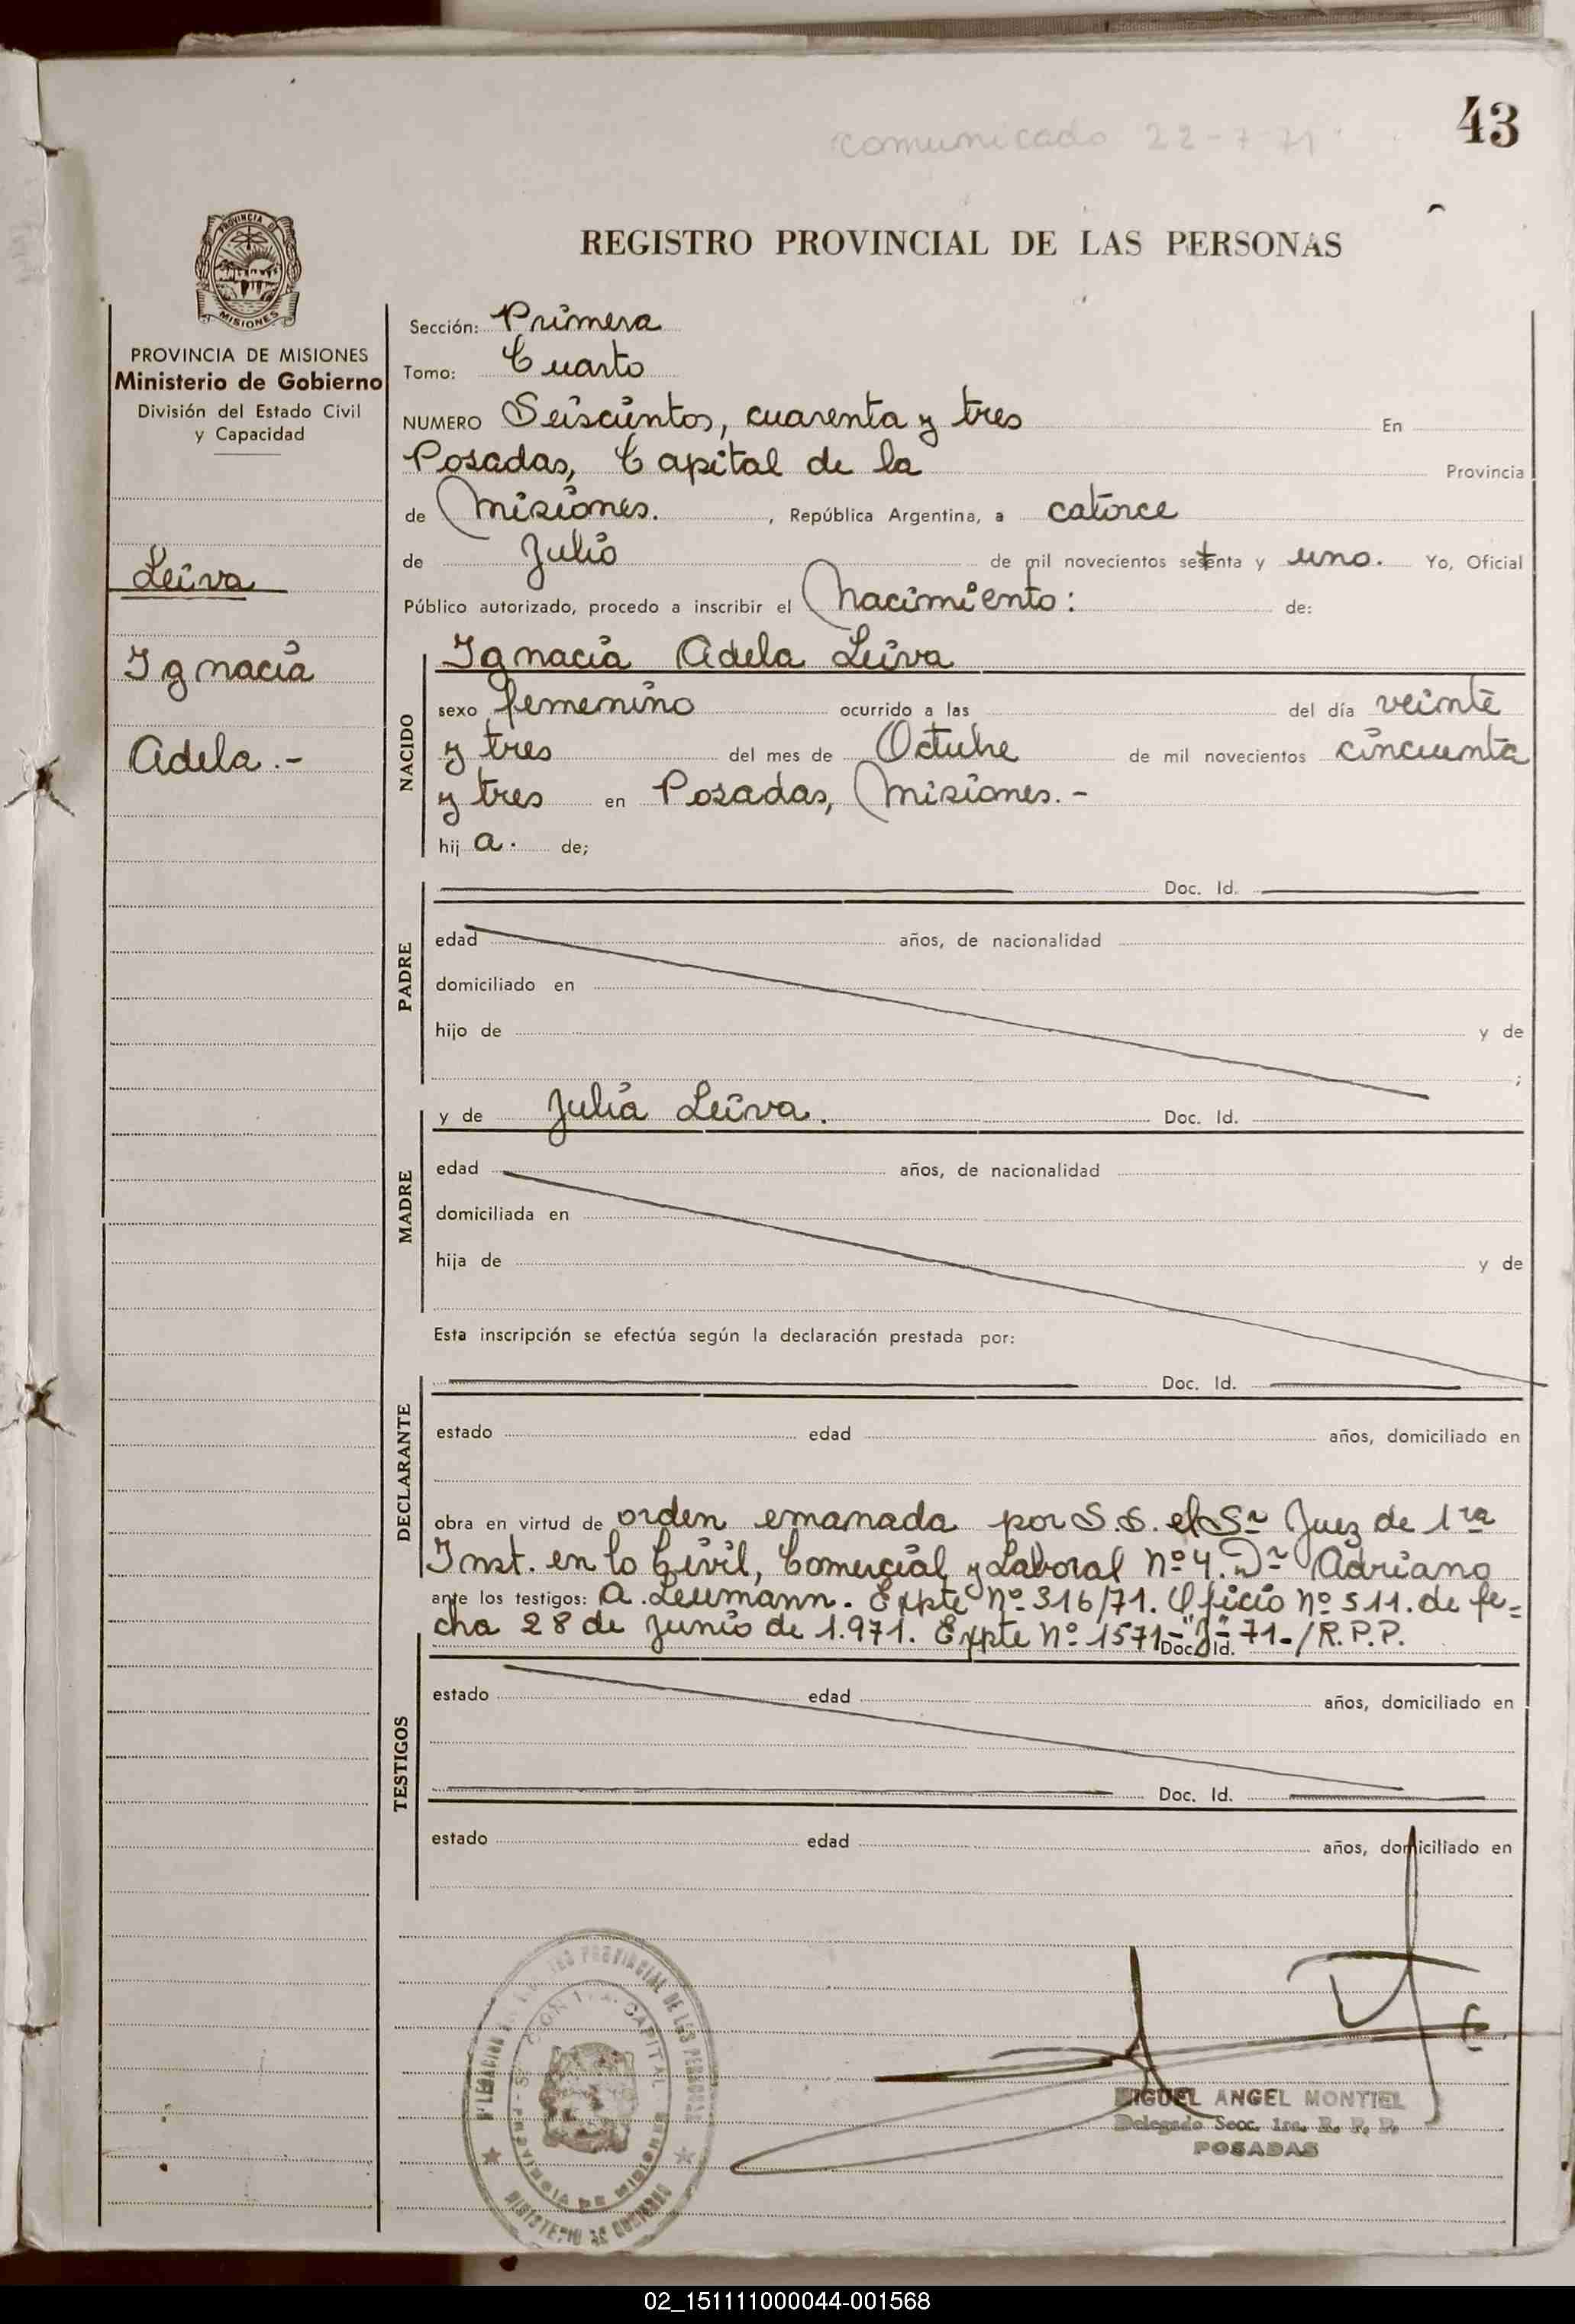 43
comunicado 22-7-71
PROVINCIA DE
MISIONES
PROVINCIA DE MISIONES
Ministerio de Gobierno
División del Estado Civil
y Capacidad
Leiva
Ignacia
Adela.-
REGISTRO PROVINCIAL DE LAS PERSONAS
Sección: Primera
Tomo: Cuarto
NUMERO Seiscientos, cuarenta y tres En
Posadas, Capital de la Provincia
de Misiones. , República Argentina, a catorce
de Julio de mil novecientos setenta y uno. Yo, Oficial
Público autorizado, procedo a inscribir el Nacimiento: de:
NACIDO
Ignacia Adela Leiva
sexo femenino ocurrido a las del día veinte
y tres del mes de Octubre de mil novecientos cincuenta
y tres en Posadas, Misiones.-
hij a. de;
PADRE
Doc. Id.
edad años, de nacionalidad
domiciliado en
hijo de y de
;
MADRE
y de Julia Leiva. Doc. Id.
edad años, de nacionalidad
domiciliada en
hija de y de
Esta inscripción se efectúa según la declaración prestada por:
DECLARANTE
Doc. Id.
estado edad años, domiciliado en
obra en virtud de orden emanada por S.S. el Sr Juez de 1ra
Inst. en lo Civil, Comercial y Laboral Nº 4. Dr Adriano
ante los testigos: A. Leumann. Expte Nº 316/71. Oficio Nº 511. de fe=
cha 28 de Junio de 1.971. Expte Nº 1571-"J"-71-/R.P.P.
Doc. Id.
TESTIGOS
estado edad años, domiciliado en
Doc. Id.
estado edad años, domiciliado en
PROVINCIAL DE LAS PERSONAS
CAPITAL
PROVINCIA DE MISIONES
MINISTERIO DE GOBIERNO
MIGUEL ANGEL MONTIEL
Delegado Secc. 1ra. R. P. P.
POSADAS
02_151111000044-001568